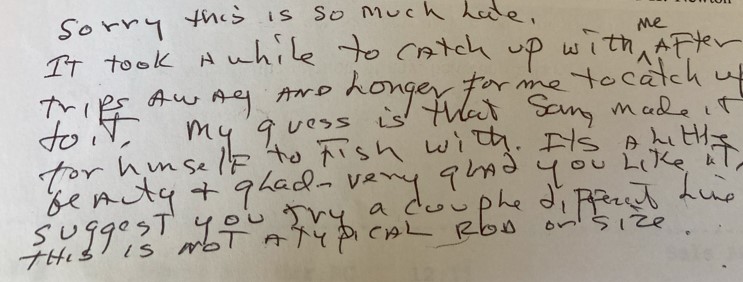 Sorry this is so much late.
It took A while to CAtch up with me AFter
trips AwAy AND Longer for me to catch up
to it. My guess is that Sam made it
for himself to Fish with. It's A little
beAuty & glad - very glad you Like it,
suggest you try a couple different Line
this is NOT A typical Rod or size.